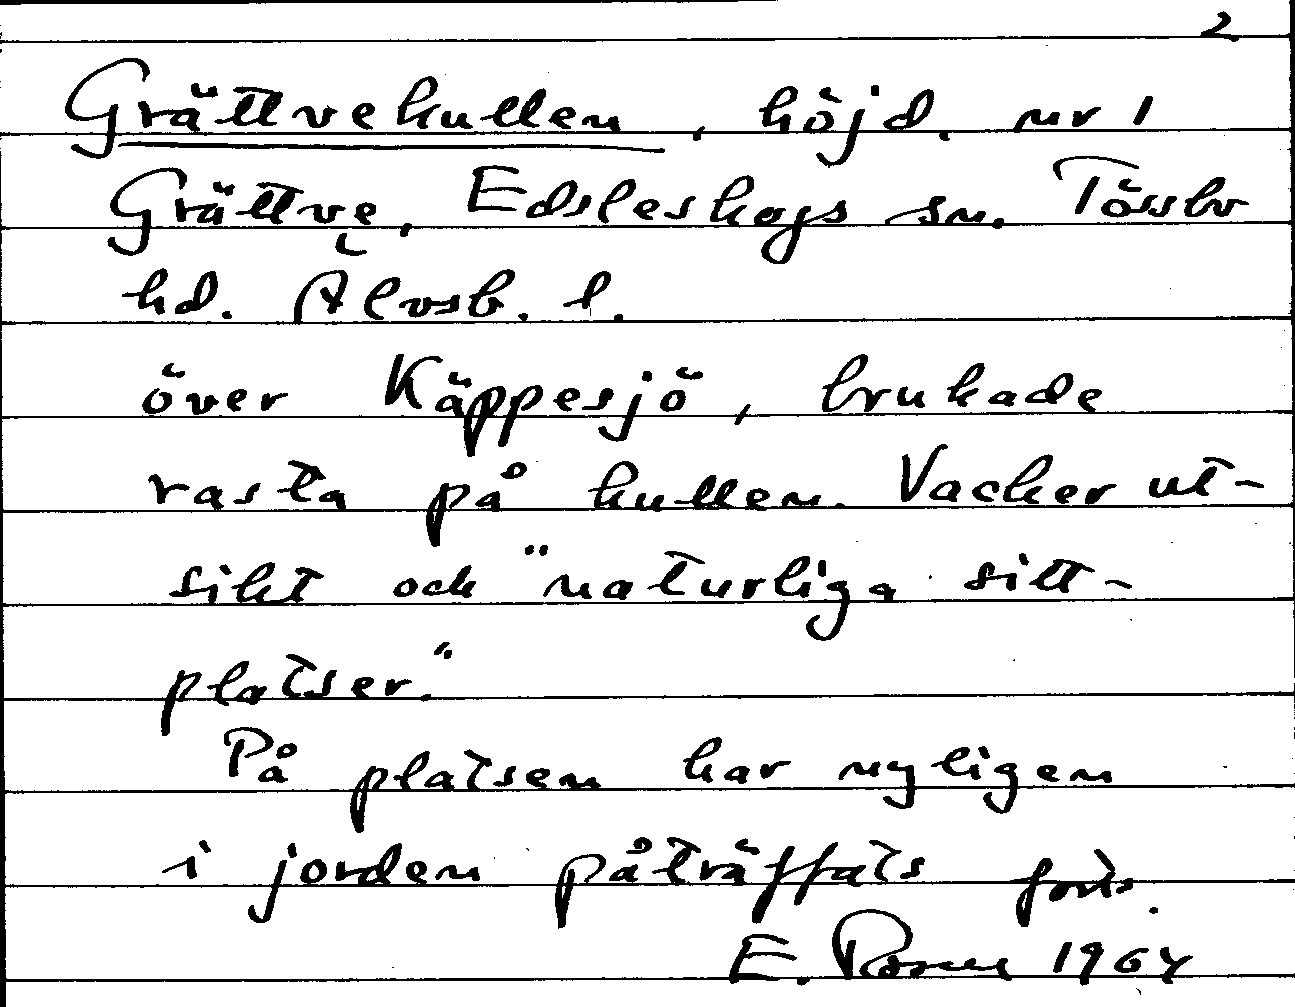 2
Grättvekullen, höjd. nr 1
Grättve, Edsleskogs sn. Tössbo
hd. Älvsb. l.
över Käppesjö, brukade
rasta på kullen. Vacker ut-
sikt och "naturliga sitt-
platser."
På platsen har nyligen
i jorden påträffats
E. 1964